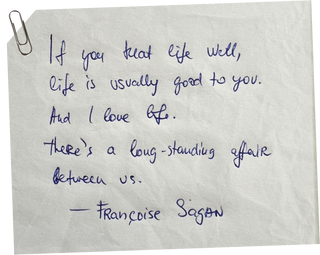 If you treat life well,
life is usually good to you.
And I love life.
There's a long-standing affair
between us.
— Françoise Sagan